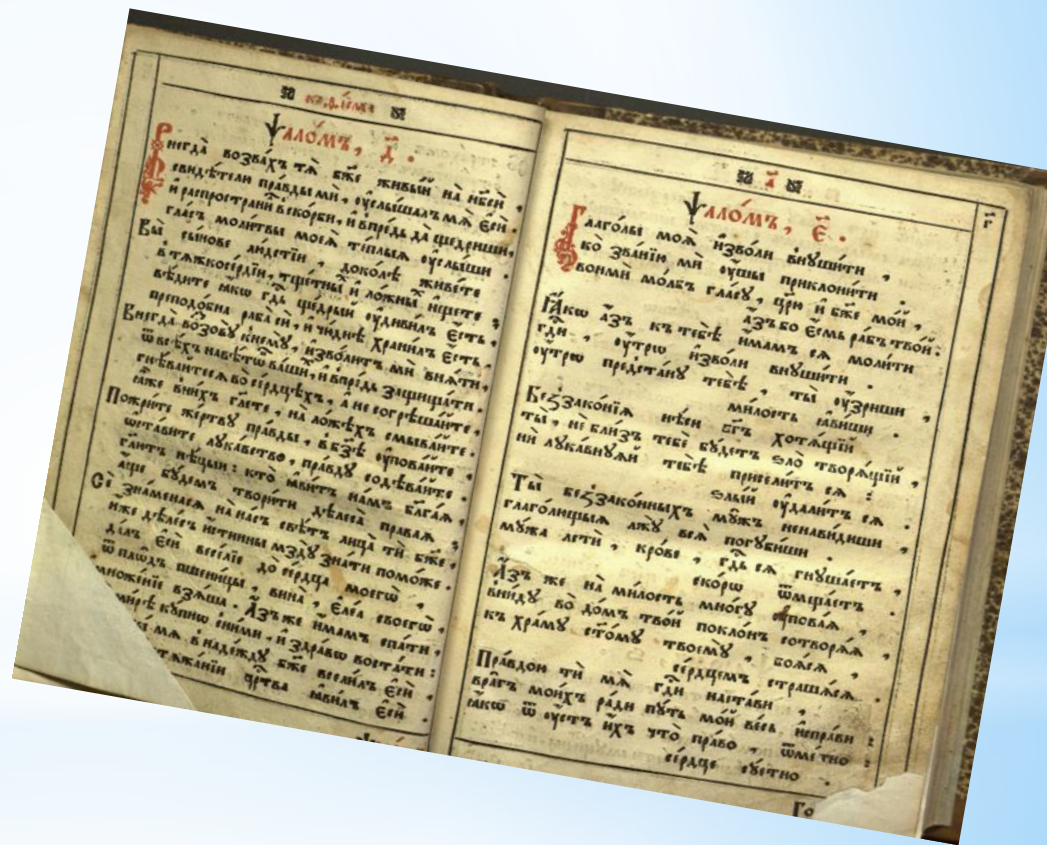 Ѱало́мъ, д҃ .
Внегда̀ возва́хъ тѧ̀ бж҃е живы́й на нб҃сѝ ,
свидѣ́тели пра́вды мѝ , ᲂу҆слы́шалъ мѧ̀ є҆сѝ .
и҆ распространѝ в ско́рби , и҆ впредь да̀ ще́дриши ,
гла́съ моли́твы моеѧ̀ те́плыѧ ᲂу҆слы́ши .
Вы̀ сы́нове доко́лѣ живе́те
в тѧ́жкосе́рдїи , тщетны̀ и҆ ло́жны и҆́щете ;
вѣ́дите ꙗ҆́кѡ гд҇ь ще́дрый ᲂу҆диви́лъ є҆́сть ,
преподо́бна раба̀ сѝ , и҆ храни́лъ є҆́сть .
Внегда̀ возову̀ к нему̀ , и҆зво́литъ мѝ внѧ́ти ,
ѿ всѣ́хъ навѣ́тѡв и҆ впредь защища́ти .
гнѣ́вайтесѧ во се́рдцѣхъ , а҆ не согрѣша́йте ,
ꙗ҆̀же в ни́хъ гл҃ете , на ло́жѣхъ смыва́йте .
Пожри́те же́ртву пра́вды , в бз҃ѣ ᲂу҆пова́йте
ѡ҆ста́вите лука́вство , пра́вду содѣва́йте .
гл҃ютъ мно́зи : кто̀ ꙗ҆ви́тъ на́мъ бл҃га́ѧ ,
а҆́ще бу́демъ твори́ти дѣлеса̀ пра́ваѧ ,
Сѐ зна́менасѧ на на́съ свѣ́тъ лица̀ тѝ бж҃е ,
и҆́же дѣле́съ и҆́стинны мзду̀ зна́ти помо́же .
да́лъ є҆сѝ весе́лїе до се́рдца моегѡ̀ ,
ѿ пло́дъ пшени́цы , вина̀ , є҆ле́а своегѡ̀ ,
мно́женїе взѧ́ша . А҆́зъ же и҆́мамъ спа́ти ,
ми́рѣ ку́пнѡ с ни́ми , и҆ здра́вѡ воста́ти :
мѧ̀ в наде́жду бж҃е всели́лъ є҆сѝ ,
тѧжа́нїи црт҇ва ꙗ҆ви́лъ є҆сѝ .
а҃
Ѱало́мъ, є҃ .
Глаго́лы моѧ̀ и҆зво́ли внꙋши́ти ,
ко зва́нїю мѝ ᲂу҆́шы приклони́ти .
вонмѝ мо́лбъ гла́су , цр҃ю и҆ бж҃е мо́й ,
а҆́зъ бо є҆́смь ра́бъ тво́й :
Ꙗ҆́кѡ а҆́зъ къ тебѣ̀ и҆́мамъ сѧ моли́ти
гд҇и , ᲂу҆́трѡ и҆зво́ли внꙋши́ти .
ᲂу҆́трѡ предста́ну тебѣ̀ , ты̀ ᲂу҆́зриши ,
ми́лость ꙗ҆ви́ши .
Беззако́нїѧ нѣ́си бг҃ъ хотѧ́щїй
ты̀ , не бли́зъ тебѐ бу́детъ ѕло̀ творѧ́щїй ,
ни лука́внуѧй тебѣ̀ присели́тъ сѧ :
ѕлы́й ᲂу҆дали́тъ сѧ .
Ты̀ беззако́нныхъ му́жъ ненави́диши ,
глаго́лющыѧ лжу̀ всѧ̀ погуби́ши .
му́жа ле́сти , кро́ве , гд҇ь сѧ гнуша́етъ ,
ско́рѡ ѿмща́етъ .
А҆́зъ же на ми́лость мно́гу ᲂу҆пова́ѧ ,
вни́ду во до́мъ тво́й покло́нъ сотворѧ́ѧ ,
къ хра́му ст҃о́му твоему̀ , боѧ́сѧ
се́рдцемъ страша́сѧ .
Пра́вдою тѝ мѧ̀ гд҇и наста́ви ,
вра́гъ мои́хъ ра́ди пу́ть мо́й ве́сь и҆спра́ви :
ꙗ҆́кѡ ѿ ᲂу҆́стъ и҆́хъ что̀ пра́во , ѿме́тно :
се́рдце су́етно .
Го